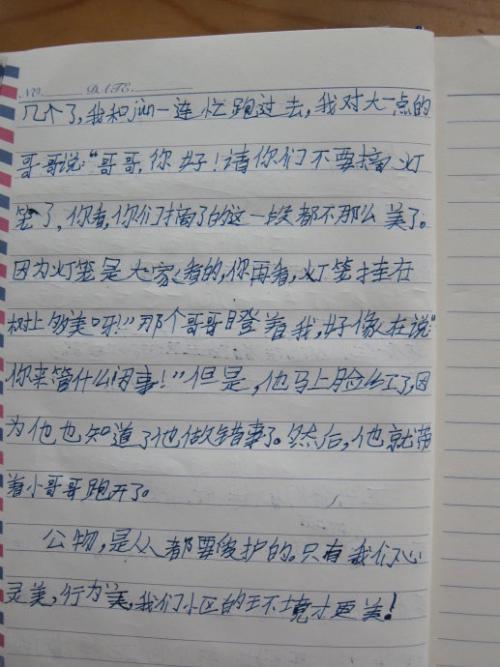 NO. DATE.
几个了,我和jùn一连忙跑过去,我对大一点的
哥哥说:"哥哥,你好!请你们不要摘灯
笼了,你看,你们摘了的这一段都不那么美了。
因为灯笼是大家看的,你再看,灯笼挂在
树上够美呀!"那个哥哥瞪着我,好像在说"
你来管什么闲事!"但是,他马上脸红了,因
为他也知道了他做错事了。然后,他就带
着小哥哥跑开了。
公物,是人人都要爱护的。只有我们心
灵美,行为美,我们小区的环境才更美!